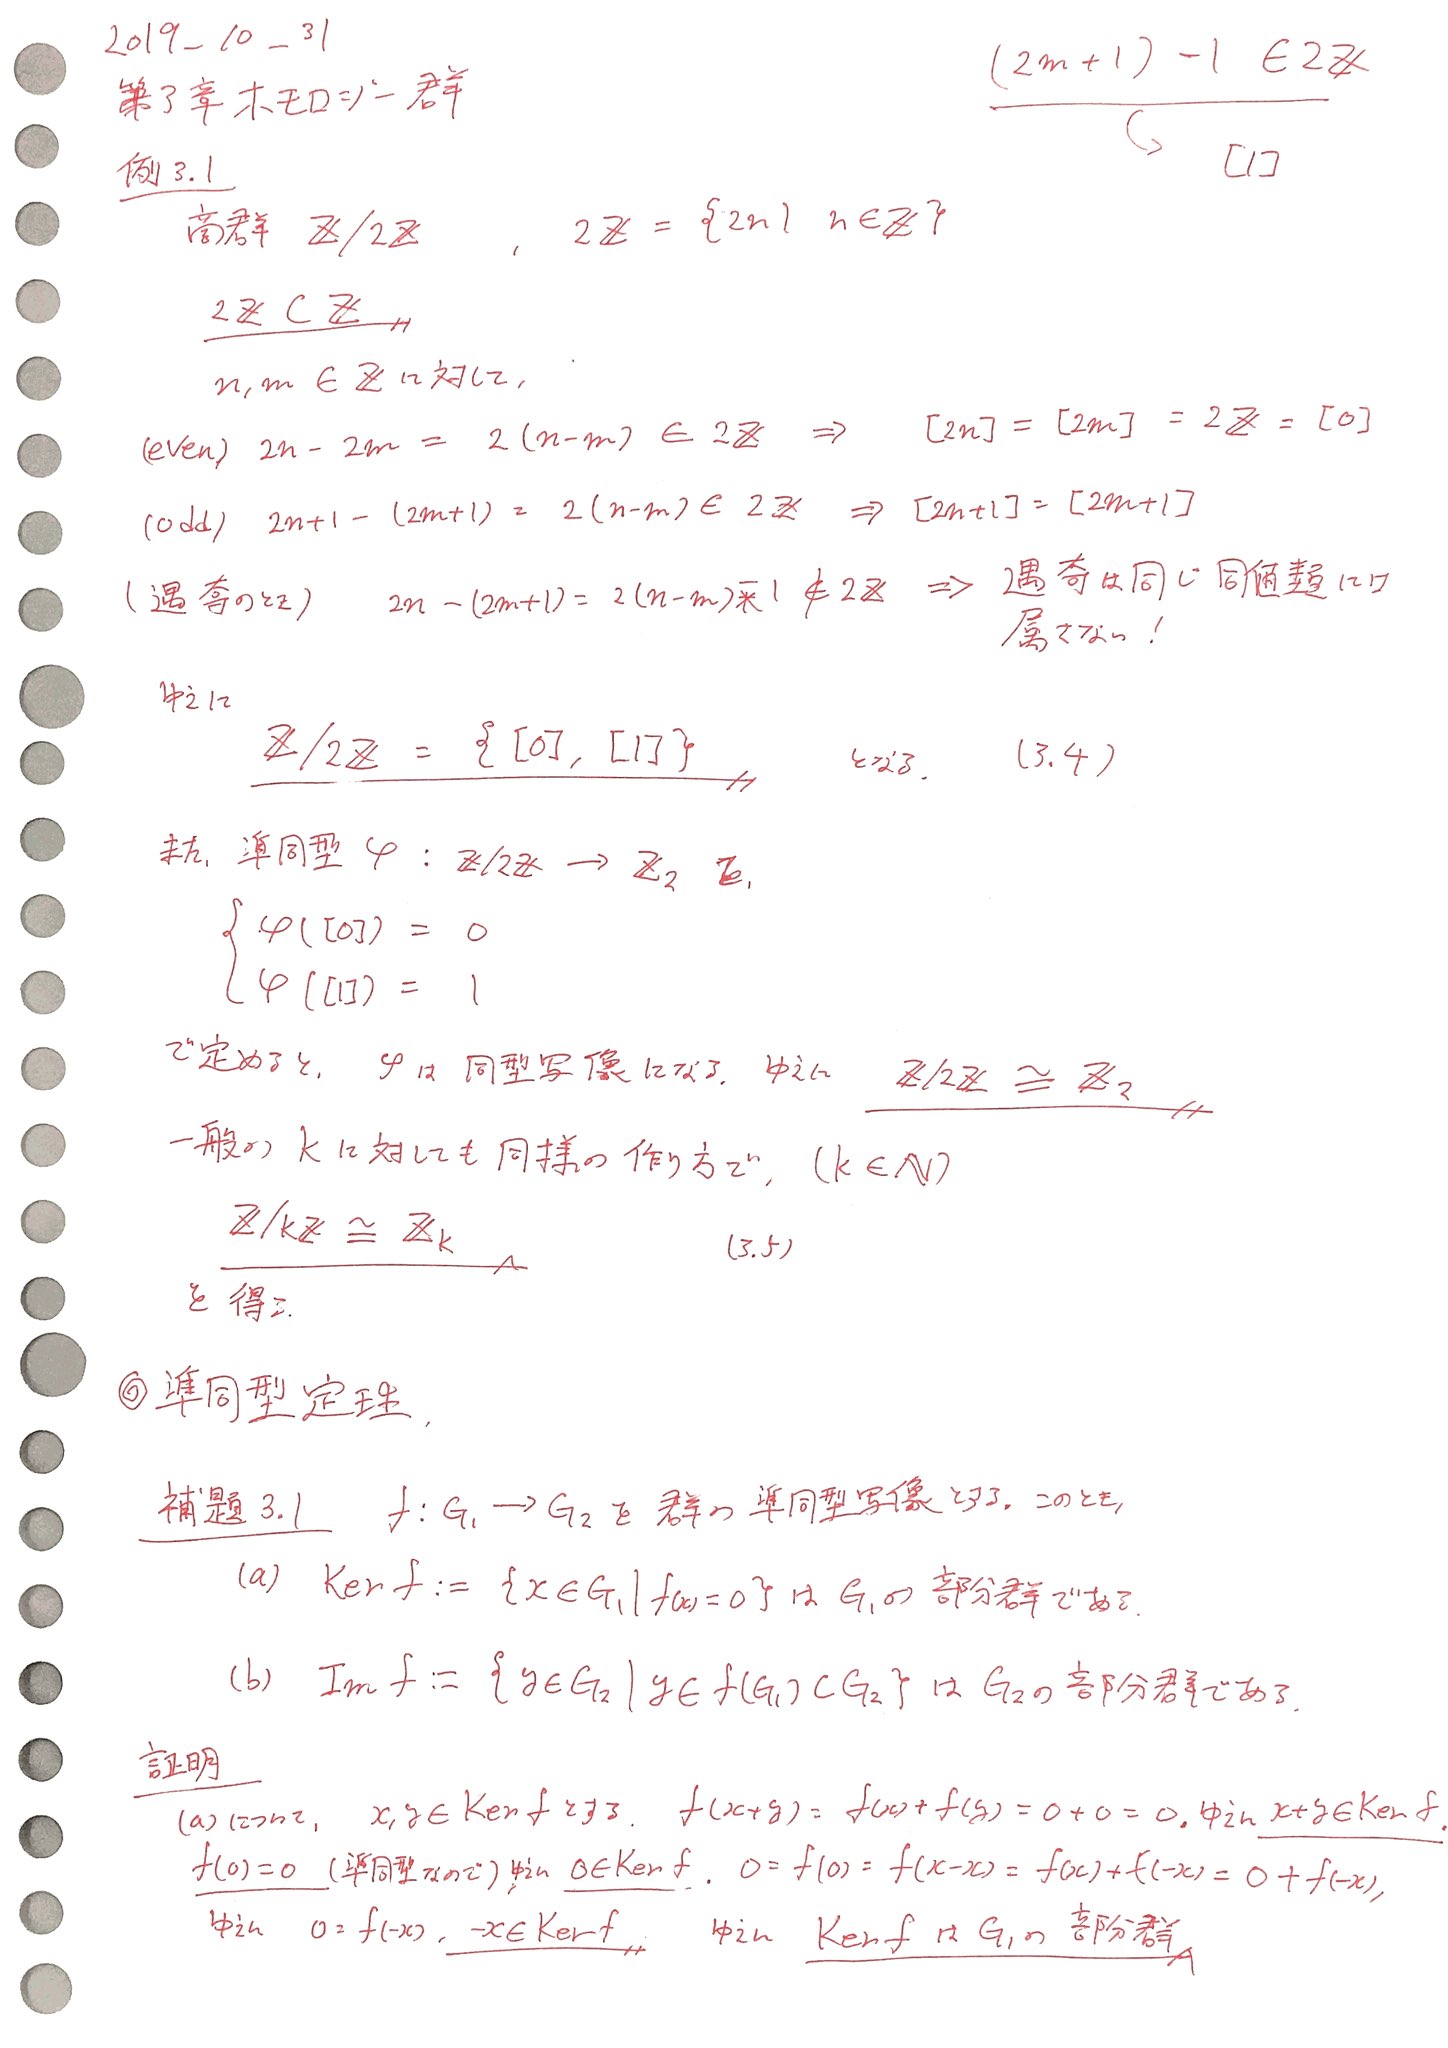 2019_10_31
(2m+1) -1 ∈ 2ℤ
第3章 ホモロジー群
[1]
例3.1
商群 ℤ/2ℤ , 2ℤ = {2n | n∈ℤ}
2ℤ ⊂ ℤ
n, m ∈ ℤ に対して,
(even) 2n - 2m = 2(n-m) ∈ 2ℤ ⇒ [2n] = [2m] = 2ℤ = [0]
(odd) 2n+1 - (2m+1) = 2(n-m) ∈ 2ℤ ⇒ [2n+1] = [2m+1]
(遇奇のとき) 2n - (2m+1) = 2(n-m) 1 ∉ 2ℤ ⇒ 遇奇は同じ同値類には
属さない!
ゆえに
ℤ/2ℤ = {[0], [1]} となる. (3.4)
また, 準同型 φ : ℤ/2ℤ → ℤ₂ を,
φ([0]) = 0
φ([1]) = 1
で定めると, φは 同型写像になる. ゆえに ℤ/2ℤ ≅ ℤ₂
一般の k に対しても同様の作り方で, (k∈ℕ)
ℤ/kℤ ≅ ℤₖ (3.5)
を得る.
◎準同型定理.
補題3.1 f : G₁ → G₂ を 群の準同型写像とする. このとき,
(a) Ker f := {x∈G₁ | f(x)=0} は G₁の 部分群である.
(b) Im f := {y∈G₂ | y∈f(G₁)⊂G₂} は G₂の部分群である.
証明
(a)について, x,y∈Ker f とする. f(x+y) = f(x)+f(y) = 0+0 = 0. ゆえに x+y∈Ker f.
f(0)=0 (準同型なので) ゆえに 0∈Ker f. 0 = f(0) = f(x-x) = f(x)+f(-x) = 0+f(-x),
ゆえに 0 = f(-x), -x∈Ker f ゆえに Ker f は G₁の 部分群